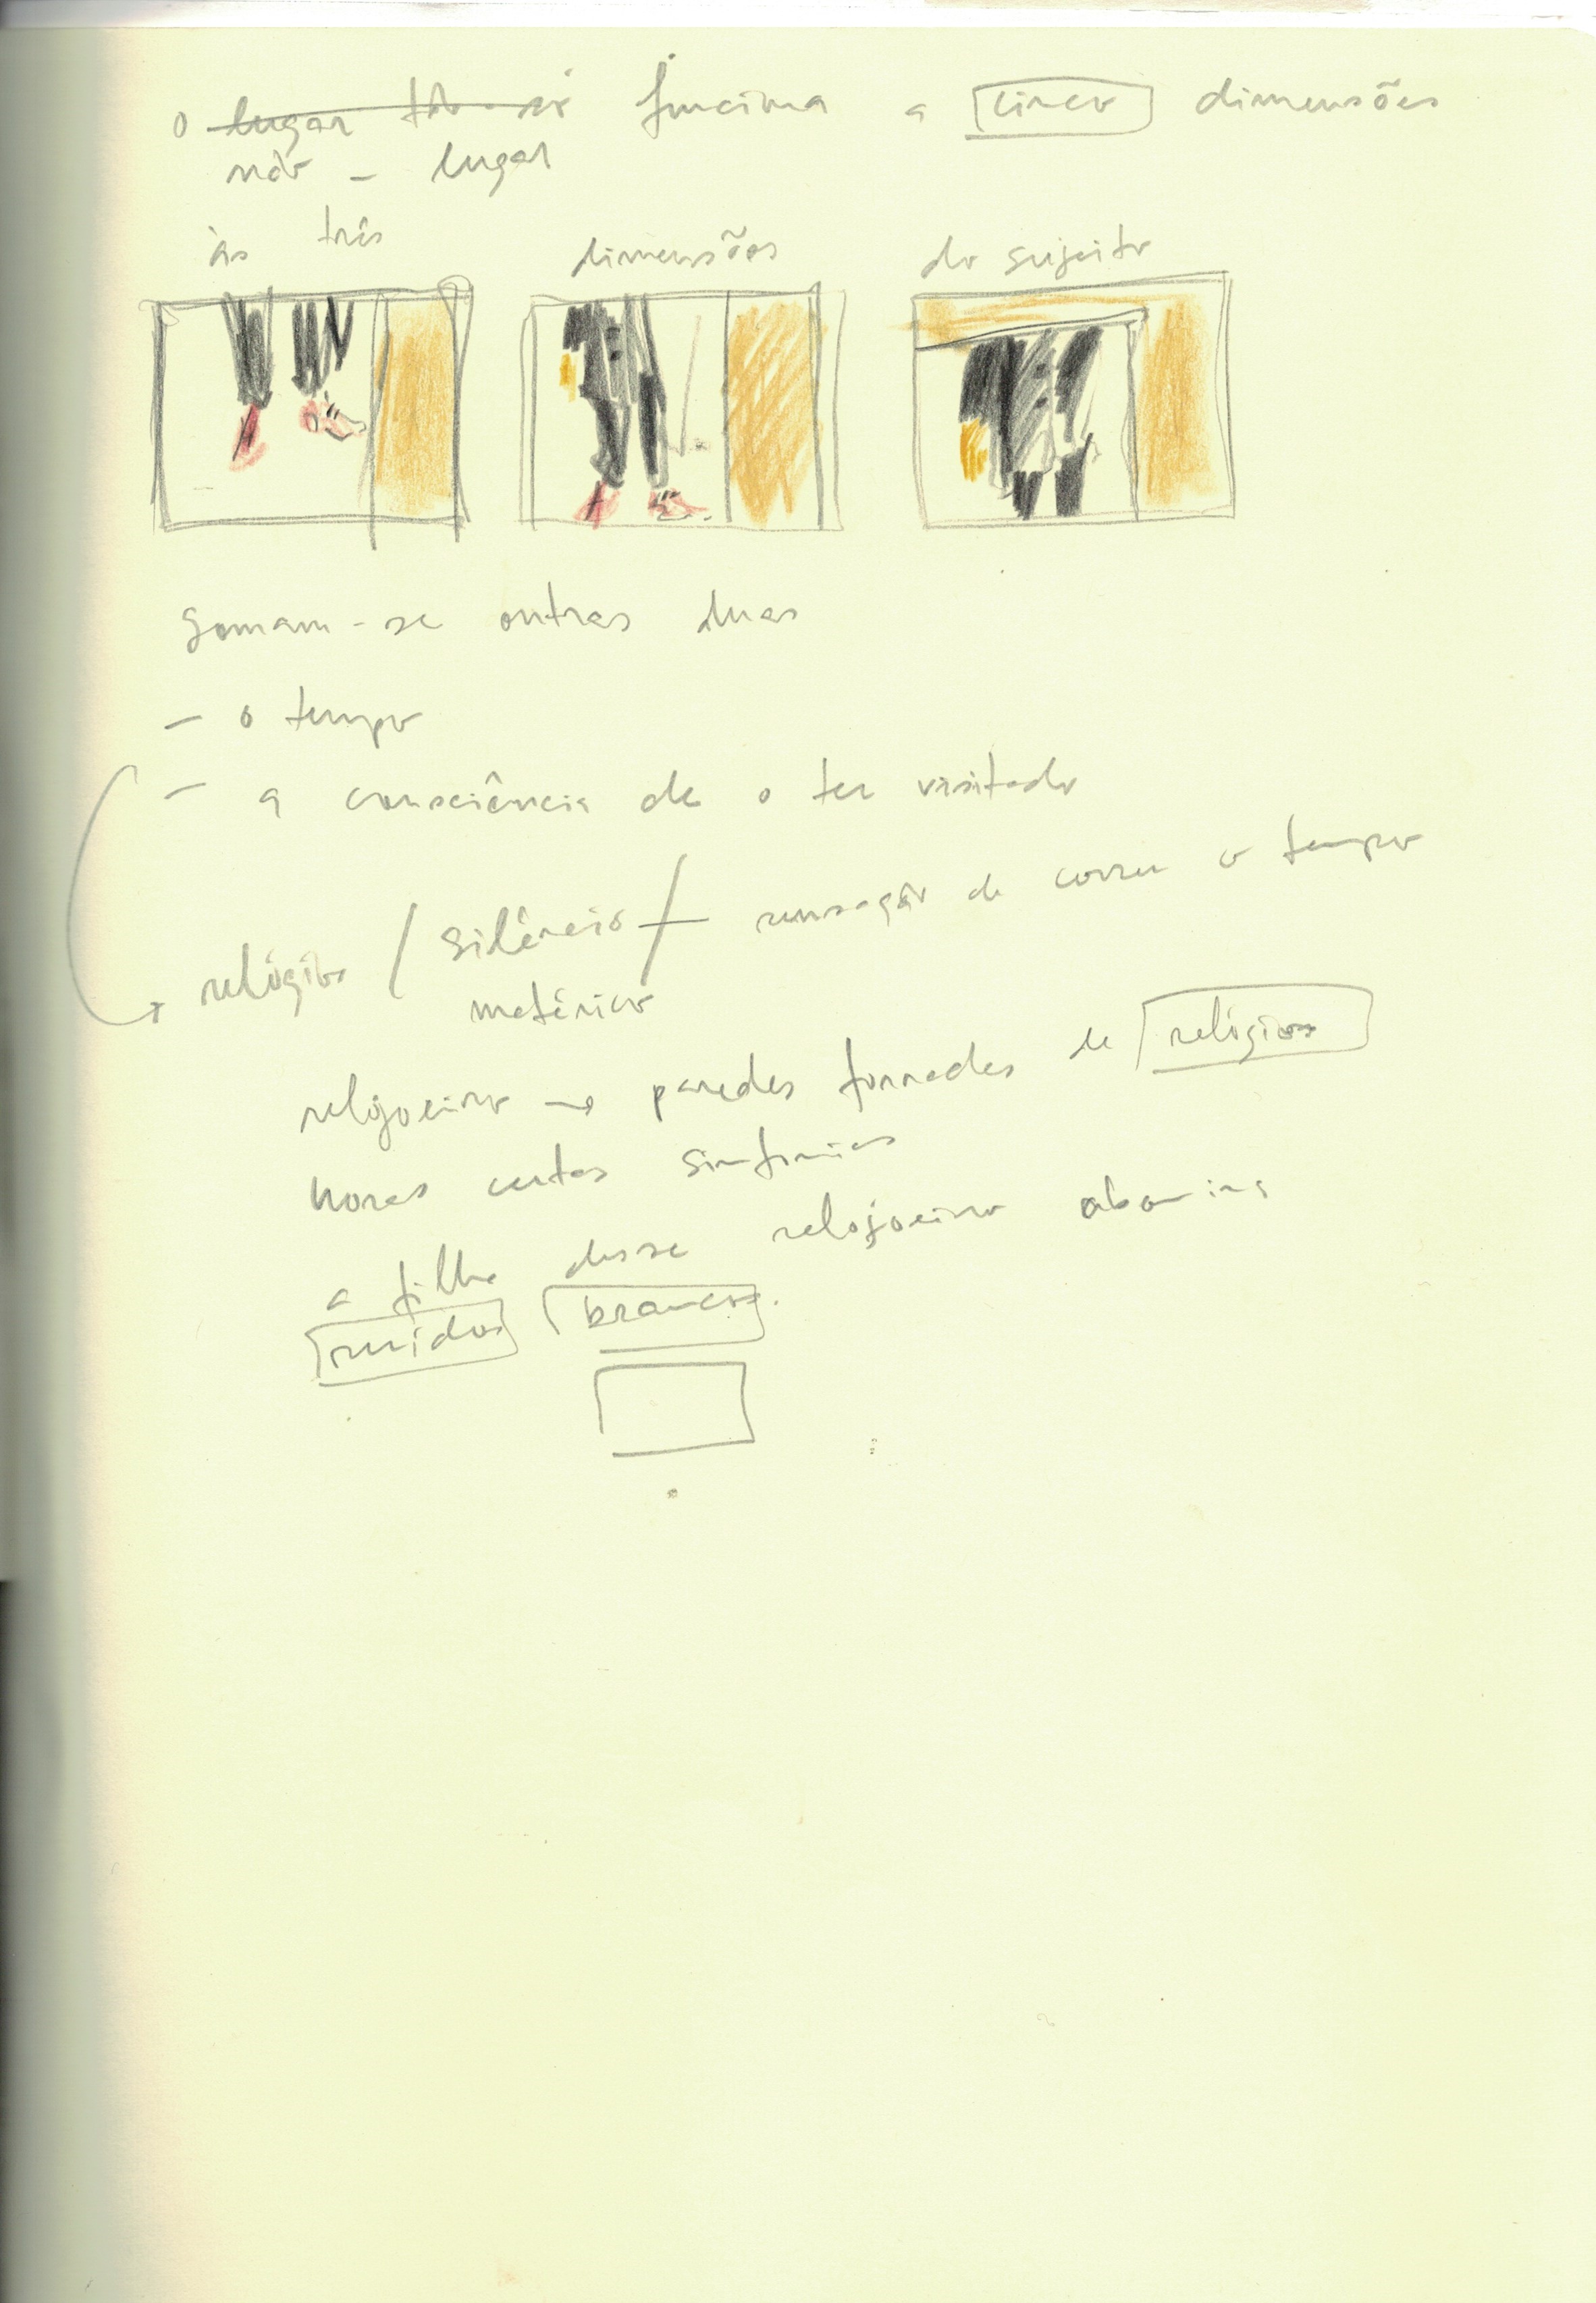 o lugar funciona a cinco dimensões
não - lugar
às três dimensões do sujeito
somam-se outras duas
- o tempo
- a consciência de o ter visitado
relógios / silêncio / sensação de correr o tempo
metérico
relojoeiro → paredes forradas de relógios
horas certas sinfonias
a filha desse relojoeiro abomina
ruídos brancos.